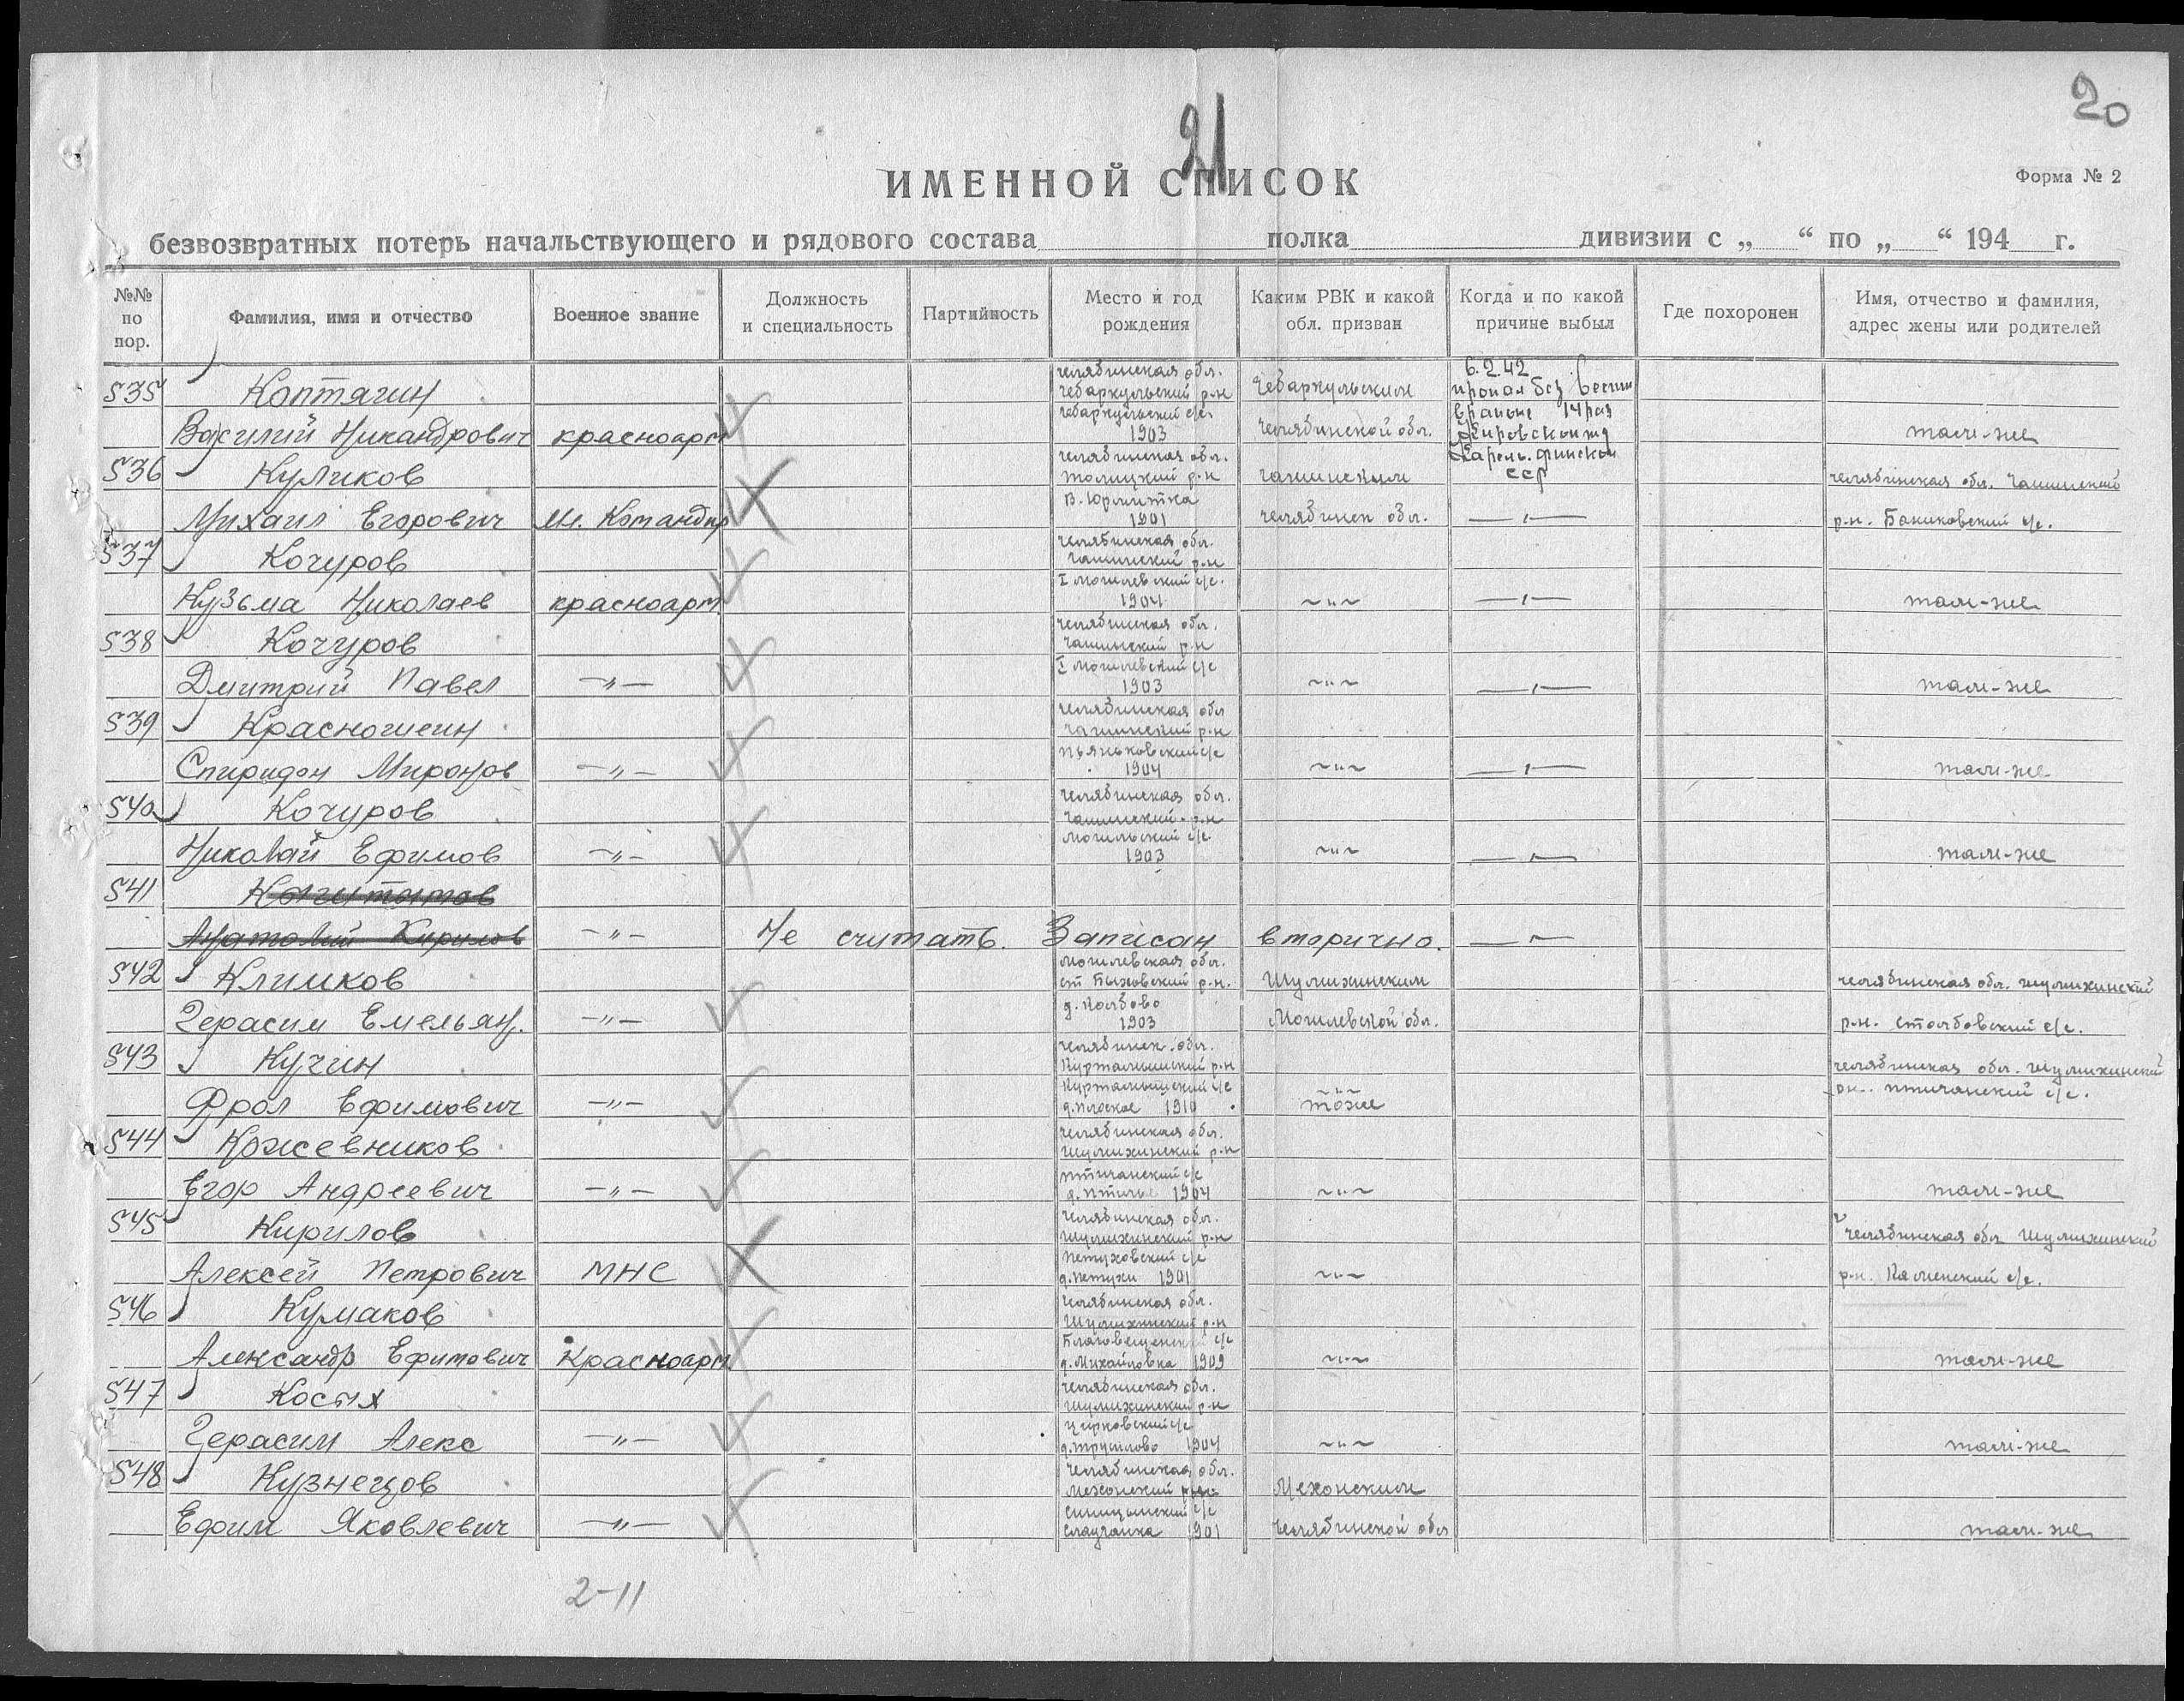 20
21
ИМЕННОЙ СПИСОК
Форма № 2
безвозвратных потерь начальствующего и рядового состава полка дивизии с „ “ по „ “ 194 г.
№№ по пор.
Фамилия, имя и отчество
Военное звание
Должность и специальность
Партийность
Место и год рождения
Каким РВК и какой обл. призван
Когда и по какой причине выбыл
Где похоронен
Имя, отчество и фамилия, адрес жены или родителей
535 Коптягин Челябинская обл. Чебаркульский р-н Чебаркульским 6.2.42 пропал без вести
Василий Никандрович красноарм Чебаркульский с/с. 1903 Челябинской обл. в районе 14 раз Кировской жд там-же
536 Куликов Челябинская обл. р-н Чашинским Карело. финской ССР Челябинская обл. Чашинский
Михаил Егорович Мл. Командир 1901 Челябинск обл. —〃— р-н. с/с.
537 Кочуров Челябинская обл. Чашинский р-н
Кузьма Николаев красноарм. I Могилевский с/с. 1904 〃 —〃— там-же
538 Кочуров Челябинская обл. Чашинский р-н
Дмитрий Павел —〃— I Могилевский с/с 1903 〃 —〃— там-же
539 Челябинская обл Чашинский р-н
Спиридон Миронов —〃— Пьянковский с/с 1904 〃 —〃— там-же
540 Кочуров Челябинская обл. Чашинский р-н
Николай Ефимов —〃— с/с. 1903 〃 —〃— там-же
541
Анатолий Кирилов —〃— Не считать. Записан вторично. —〃—
542 Климков Могилевская обл. ст Быховский р-н. Шумихинским Челябинская обл. Шумихинский
Герасим Емельян. —〃— 1903 Могилевской обл. р-н. Столбовский с/с.
543 Кучин Челябинск. обл. Куртамышский р-н Челябинская обл. Шумихинский
Фрол Ефимович —〃— Куртамышский с/с д. Плоское 1910 тоже рн. Птичанский с/с.
544 Кожевников Челябинская обл. Шумихинский р-н
Егор Андреевич —〃— Птичанский с/с д. Птичье 1904 〃 там-же
545 Кирилов Челябинская обл. Шумихинский р-н Челябинская обл Шумихинский
Алексей Петрович МНС Петуховский с/с д. Петухи 1901 〃 р-н. с/с.
546 Кумаков Челябинская обл. Шумихинский р-н
Александр Ефимович Красноарм. с/с д. Михайловка 1909 〃 там-же
547 Косых Челябинская обл. Шумихинский р-н
Герасим Алекс —〃— с/с 1904 〃 там-же
548 Кузнецов Челябинская обл. Мехонский р-н Мехонским
Ефим Яковлевич —〃— с/с 1901 Челябинской обл там-же
2-11